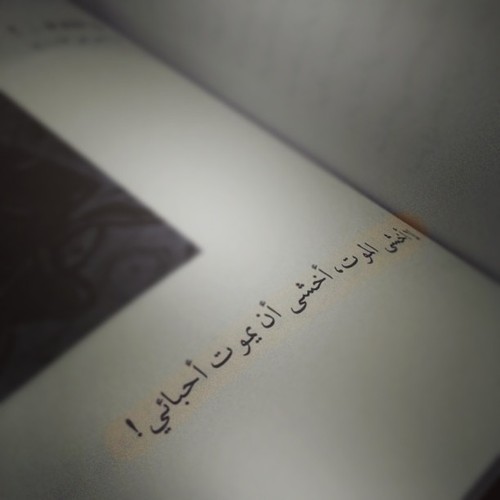 أخشى الموت، أخشى أن يموت أحبائي !